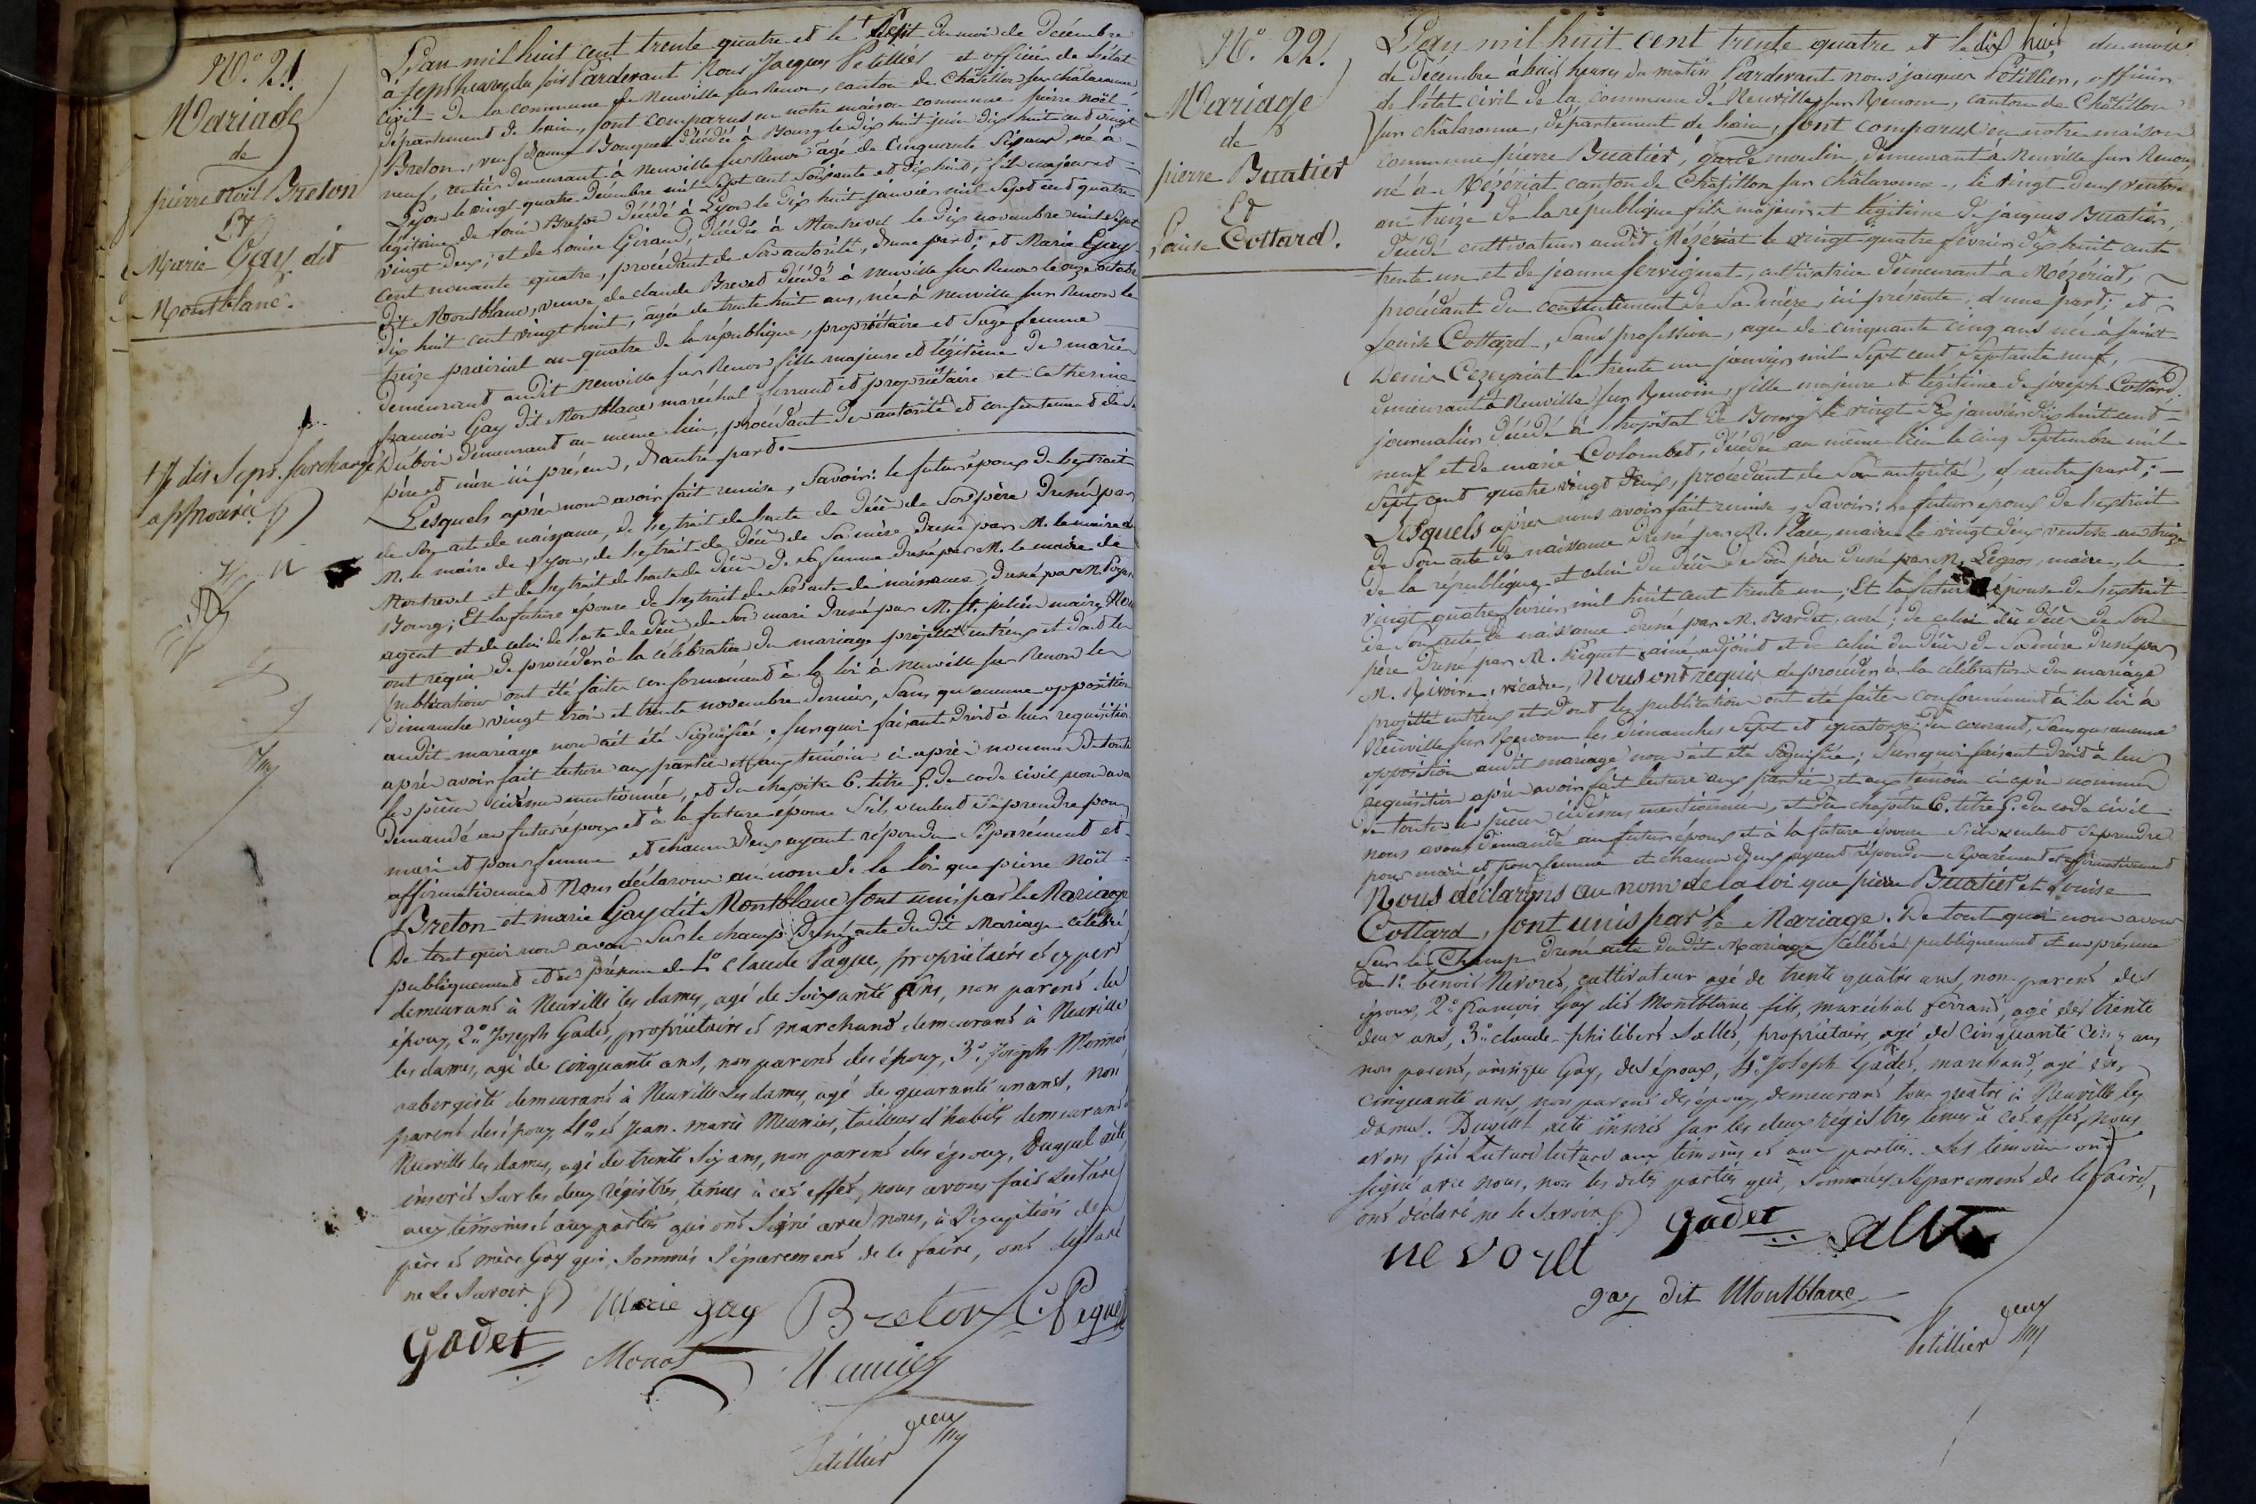 N.º 21.
Mariage
de
pierre Noël Breton
Et
Marie Gay dit
Montblanc.
L'an mil huit cent trente quatre et le † Sept du mois de Décembre
à sept heures du soir Pardevant Nous Jacques Petillier et officier de l'état
civil de la commune de Neuville sur Renon, canton de Châtillon sur chalaronne
département de l'ain, sont comparus en notre maison commune pierre Noël
Breton, veuf Bouquet décédée à Bourg le dix huit juin dix huit cent vingt
neuf, rentier demeurant à Neuville sur Renon âgé de cinquante six ans né à
Lyon le vingt quatre Décembre mil sept cent soixante et dix huit, fils majeur et
légitime de Louis Breton décédé à Lyon le dix huit janvier mil sept cent quatre
vingt deux, et de Louise Giraud, décédée à Montrevel le dix novembre mil sept
cent nonante quatre, procédant de son autorité, d'une part; et Marie Gay
dit Montblanc, veuve de claude Brevet décédé à Neuville sur Renon le onze octobre
dix huit cent vingt huit, âgée de trente huit ans, née à Neuville sur Renon le
treize prairial an quatre de la république, propriétaire et Sage femme
demeurant audit Neuville sur Renon fille majeure et légitime de Marie
françois Gay dit Montblanc maréchal ferrand et propriétaire et Catherine
Dubois demeurant au même lieu, procédant de autorité et consentement de ses
père et mère ici présens, d'autre part.
† dis Sept. surchargé
approuvé
Lesquels après nous avoir fait remise, Savoir: le futur époux de l'extrait
de son acte de naissance, de l'extrait de l'acte de décès de son père Dressé par
M. le maire de Lyon, de l'extrait de décès de sa mère dressé par M. le maire de
Montrevel et de l'extrait de l'acte de décès de sa femme dressé par M. le maire de
Bourg; Et la future épouse de l'extrait de son acte de naissance, dressé par M.
agent et de celui de l'acte de décès de son mari dressé par M. St. julien maire, Nous
ont requis de procéder à la célébration du mariage projetté entr'eux et dont les
publications ont été faites conformément à la loi à Neuville sur Renon les
Dimanches vingt trois et trente novembre dernier, sans qu'aucune opposition
audit mariage nous ait été signifiée; sur quoi faisant droit à leur requisition
après avoir fait lecture aux parties et aux témoins ci après nommés de toutes
les pièces cidessus mentionnées, et du chapitre 6. titre 5. du code civil nous avons
demandé au futur époux et à la future épouse s'ils veulent se prendre pour
mari et pour femme et chacun d'eux ayant répondu séparément et
affirmativement Nous déclarons au nom de la loi que pierre Noël
Breton et marie Gay dit Montblanc sont unis par le Mariage
De tout quoi nous avons sur le champ dressé acte du dit Mariage célébré
publiquement et en présence de 1º Claude Pague, propriétaire et
demeurant à Neuville les dames, agé de soixante ans, non parent des
époux, 2.º Joseph Gadet, propriétaire et marchand demeurant à Neuville
les dames, agé de cinquante ans, non parent des époux, 3.º Joseph Monnot
aubergiste demeurant à Neuville les dames, agé de quarante un ans, non
parent des époux 4.º et Jean-marie Meunier, tailleur d'habits demeurant à
Neuville les dames, agé de trente six ans, non parent des époux, Duquel acte
inscrit sur les deux régistres tenus à cet effet, nous avons fait lecture
aux témoins et aux parties qui ont signé avec nous, à l'exception des
père et mère Gay qui, sommés séparement de le faire, ont déclaré
ne le savoir
Marie gay Breton
Gadet Monot Meunier
Petillier
N.º 22.
Mariage
de
pierre Buatier
Et
Louise Cottard.
L'an mil huit cent trente quatre et le dix huit du mois
de décembre à huit heures du matin Pardevant nous jacques Petillier, officier
de l'état civil de la commune de Neuville sur Renom, canton de Châtillon
sur châlaronne, département de l'ain, sont comparus en notre maison
commune pierre Buatier, garde moulin, demeurant à Neuville sur Renom,
né à Mézériat canton de Châtillon sur châlaronne, le vingt deux ventose
an treize de la république fils majeur et légitime de jacques Buatier,
décédé cultivateur audit Mézériat le vingt quatre février dix huit cent
trente un et de jeanne Fervignat, cultivatrice demeurant à Mézériat,
procédant du consentement de sa mère, ici présente, d'une part; et
Louise Cottard, sans profession, agée de cinquante cinq ans née à saint
Denis Cezeyriat le trente un janvier mil sept cent septante neuf,
demeurant à Neuville sur Renom, fille majeure et légitime de joseph Cottard
journalier décédé à l'hopital de Bourg le vingt six janvier dix huit cent
neuf et de marie Colombet, décédée au même lieu le cinq septembre mil
sept cent quatre vingt deux, procédant de son autorité, d'autre part;
Lesquels après nous avoir fait remise, savoir: le futur époux de l'extrait
de son acte de naissance dressé par M. Place, maire le vingt deux ventose an treize
de la république et celui du décès de son père dressé par M. Legros, maire, le
vingt quatre février mil huit cent trente un; Et la future épouse de l'extrait
de son acte de naissance dressé par M. Bardet, curé; de celui du décès de son
père dressé par M. Piquet ainé adjoint et de celui du décès de sa mère dressé par
M. Rivoire, vicaire, Nous ont requis de procéder à la célébration du mariage
projetté entr'eux et dont les publications ont été faites conformément à la loi à
Neuville sur Renom les dimanches sept et quatorze du courant, sans qu'aucune
opposition audit mariage nous ait été signifiée; sur quoi faisant droit à leur
requisition après avoir fait lecture aux parties et aux témoins ci après nommés
de toutes les pièces cidessus mentionnées, et du chapitre 6. titre 5. du code civil
nous avons demandé au futur époux et à la future épouse s'ils veulent se prendre
pour mari et pour femme et chacun d'eux ayant répondu séparément et affirmativement
Nous déclarons au nom de la loi que pierre Buatier et Louise
Cottard, sont unis par le Mariage. De tout quoi nous avons
sur le Champ dressé acte dudit Mariage célébré publiquement et en présence
de 1.º benoit Nevoret, cultivateur agé de trente quatre ans, non parent des
époux, 2.º françois Gay dit Montblanc fils, maréchal ferrand, agé de trente
deux ans, 3.º claude-philibert Sallet, propriétaire, agé de cinquante cinq ans
non parent, ainsi que Gay, des époux, 4.º Joseph Gadet, marchand, agé de
cinquante ans, non parent des époux, demeurant tous quatre à Neuville les
dames. Duquel acte inscrit sur les deux régistres tenus à cet effet, nous
avons fait lecture lecture aux témoins et aux parties. Les temoins ont
signé avec nous, non les dites parties qui, sommées séparement de le faire,
ont déclaré ne le savoir
Gadet
gay dit Montblanc
Petillier